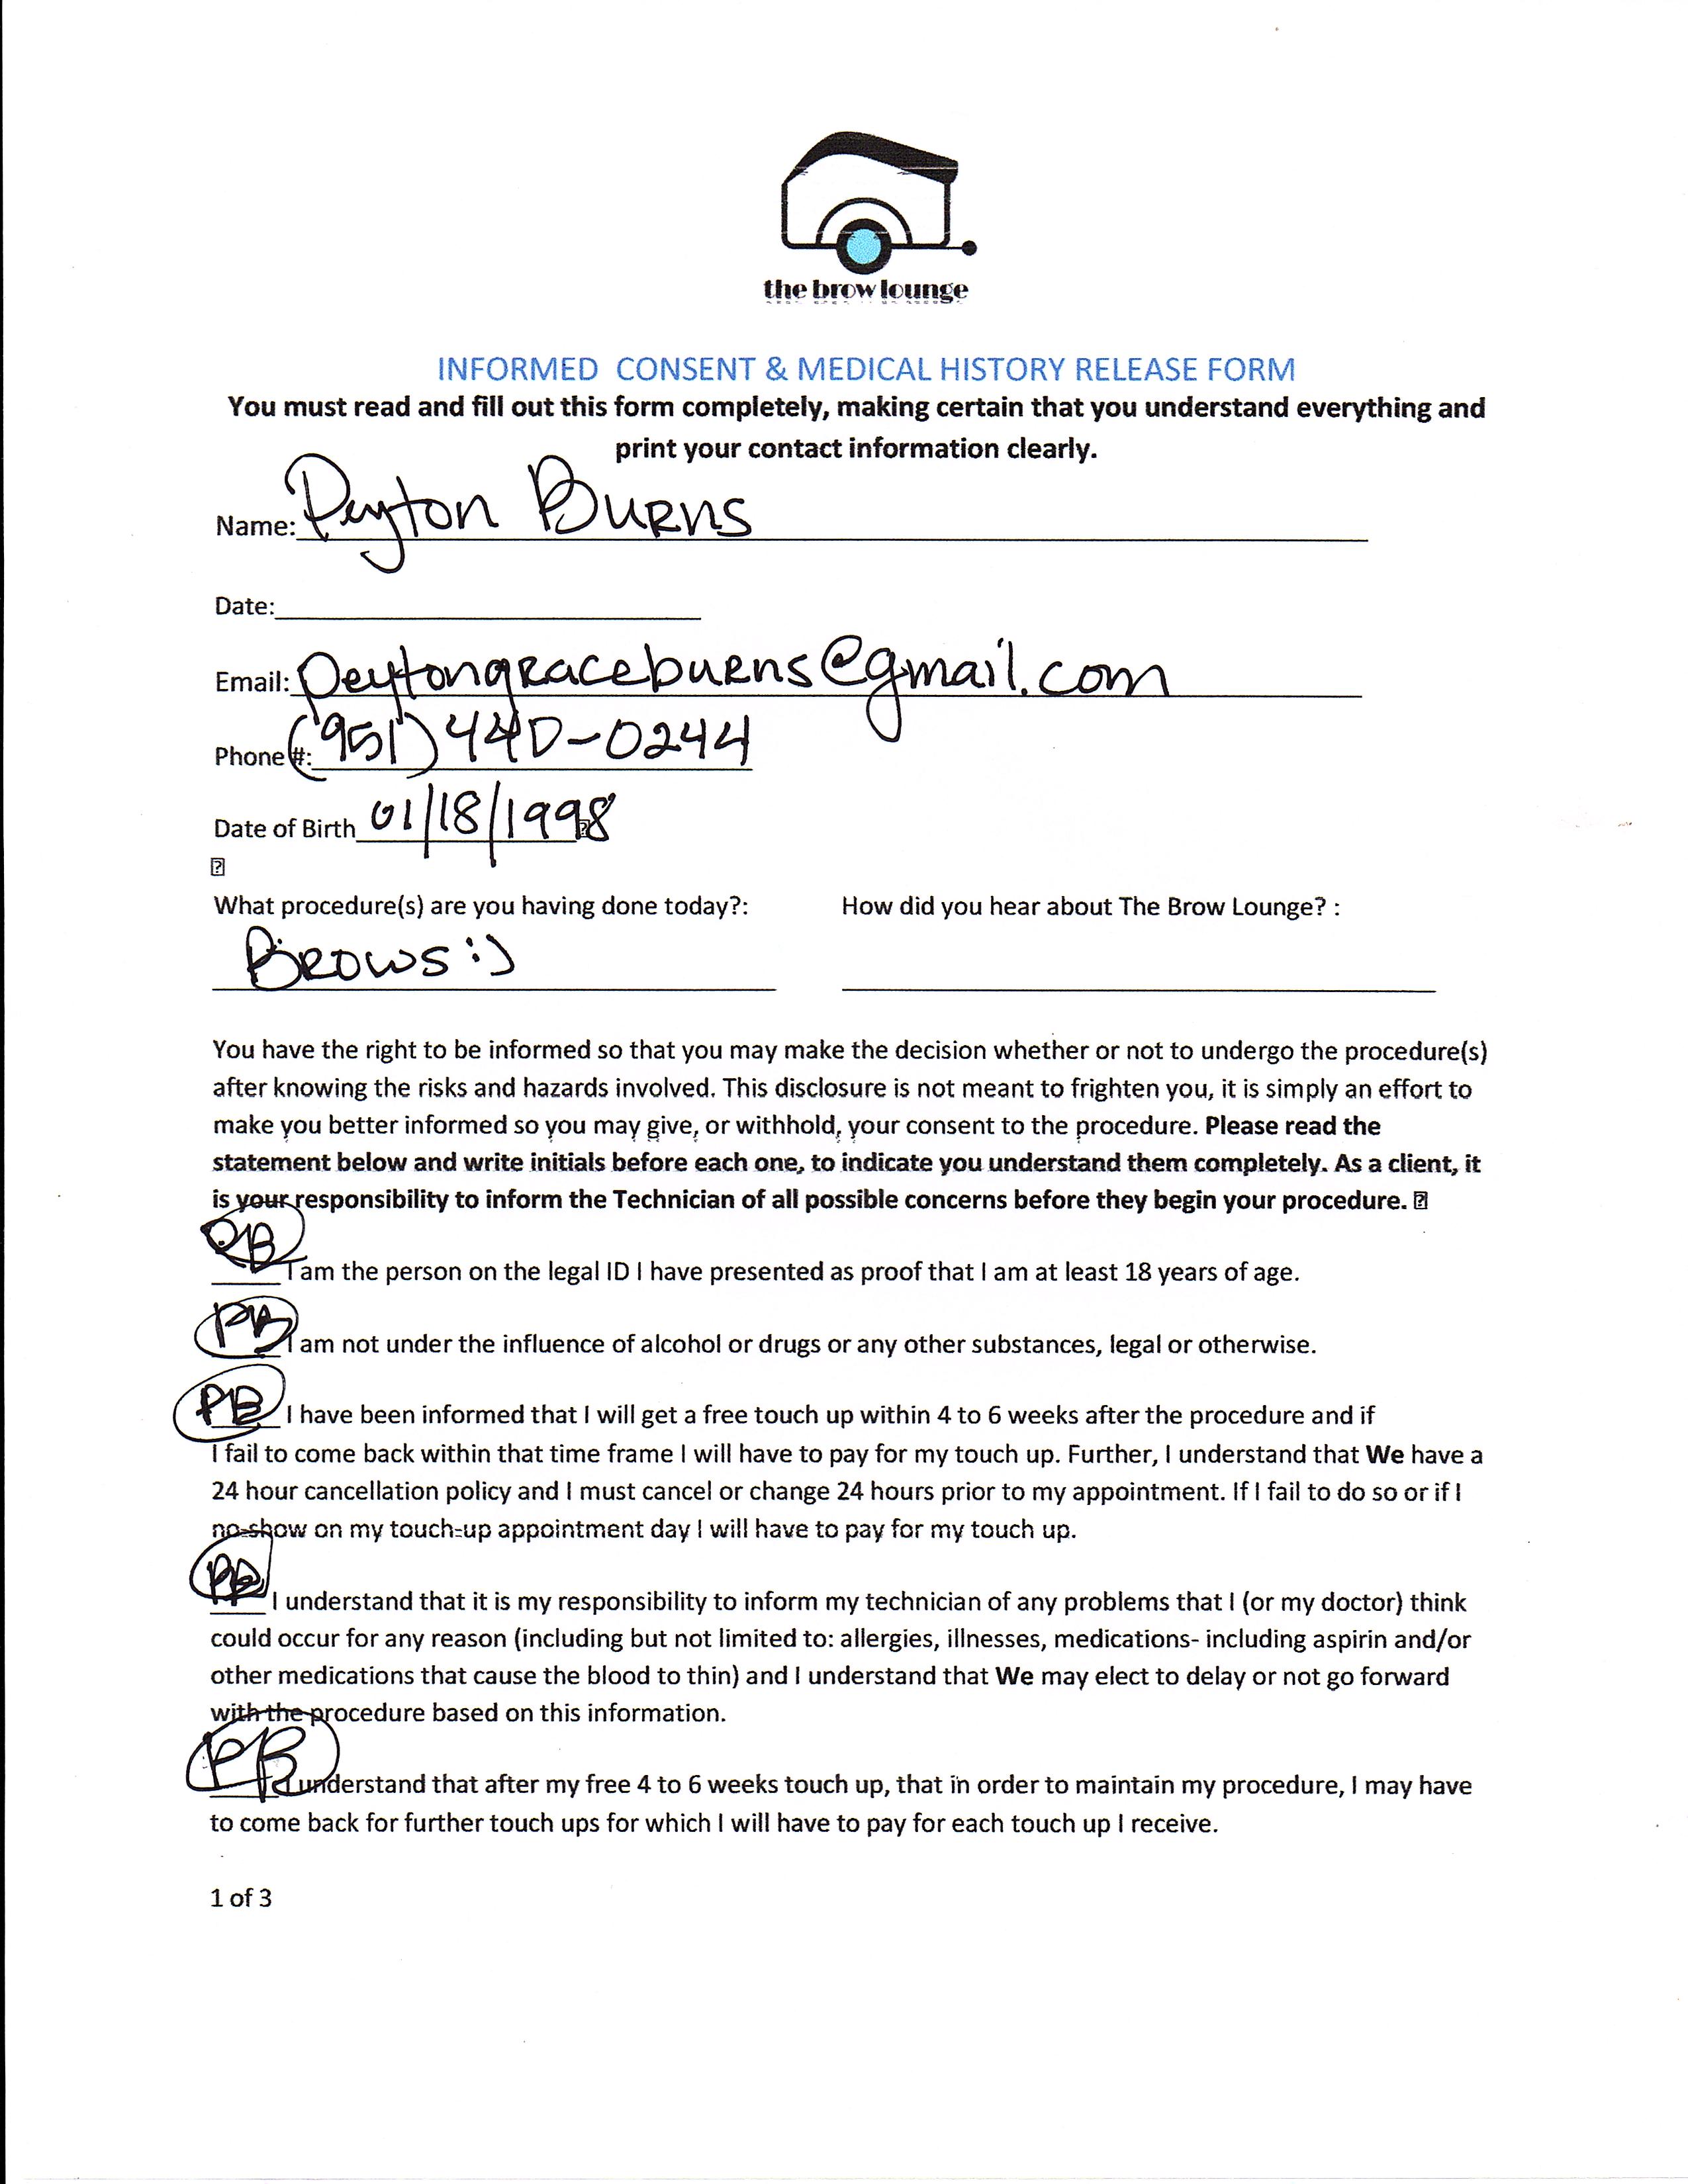 the brow lounge
INFORMED CONSENT & MEDICAL HISTORY RELEASE FORM
You must read and fill out this form completely, making certain that you understand everything and
print your contact information clearly.
Name: Peyton Burns
Date:
Email: peytongraceburns@gmail.com
Phone #: (951) 440-0244
Date of Birth 01/18/1998
What procedure(s) are you having done today?: How did you hear about The Brow Lounge? :
Brows :)
You have the right to be informed so that you may make the decision whether or not to undergo the procedure(s)
after knowing the risks and hazards involved. This disclosure is not meant to frighten you, it is simply an effort to
make you better informed so you may give, or withhold, your consent to the procedure. Please read the
statement below and write initials before each one, to indicate you understand them completely. As a client, it
is your responsibility to inform the Technician of all possible concerns before they begin your procedure.
PB I am the person on the legal ID I have presented as proof that I am at least 18 years of age.
PB I am not under the influence of alcohol or drugs or any other substances, legal or otherwise.
PB I have been informed that I will get a free touch up within 4 to 6 weeks after the procedure and if
I fail to come back within that time frame I will have to pay for my touch up. Further, I understand that We have a
24 hour cancellation policy and I must cancel or change 24 hours prior to my appointment. If I fail to do so or if I
no-show on my touch-up appointment day I will have to pay for my touch up.
PB I understand that it is my responsibility to inform my technician of any problems that I (or my doctor) think
could occur for any reason (including but not limited to: allergies, illnesses, medications- including aspirin and/or
other medications that cause the blood to thin) and I understand that We may elect to delay or not go forward
with the procedure based on this information.
PB I understand that after my free 4 to 6 weeks touch up, that in order to maintain my procedure, I may have
to come back for further touch ups for which I will have to pay for each touch up I receive.
1 of 3